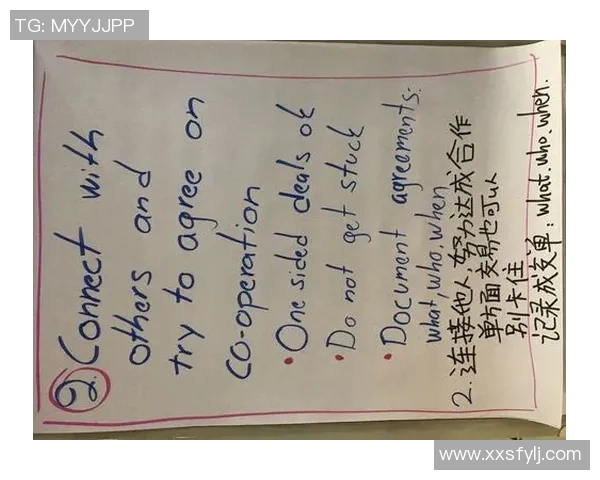 TG: MYYJJPP
2. Connect with
others and
try to agree on
co-operation
• One sided deals ok
• Do not get stuck
• Document agreements:
what, who, when
2. 连接他人,努力达成合作
单方面交易也可以
别卡住
记录成交单: what. who. when.
www.xxsfylj.com